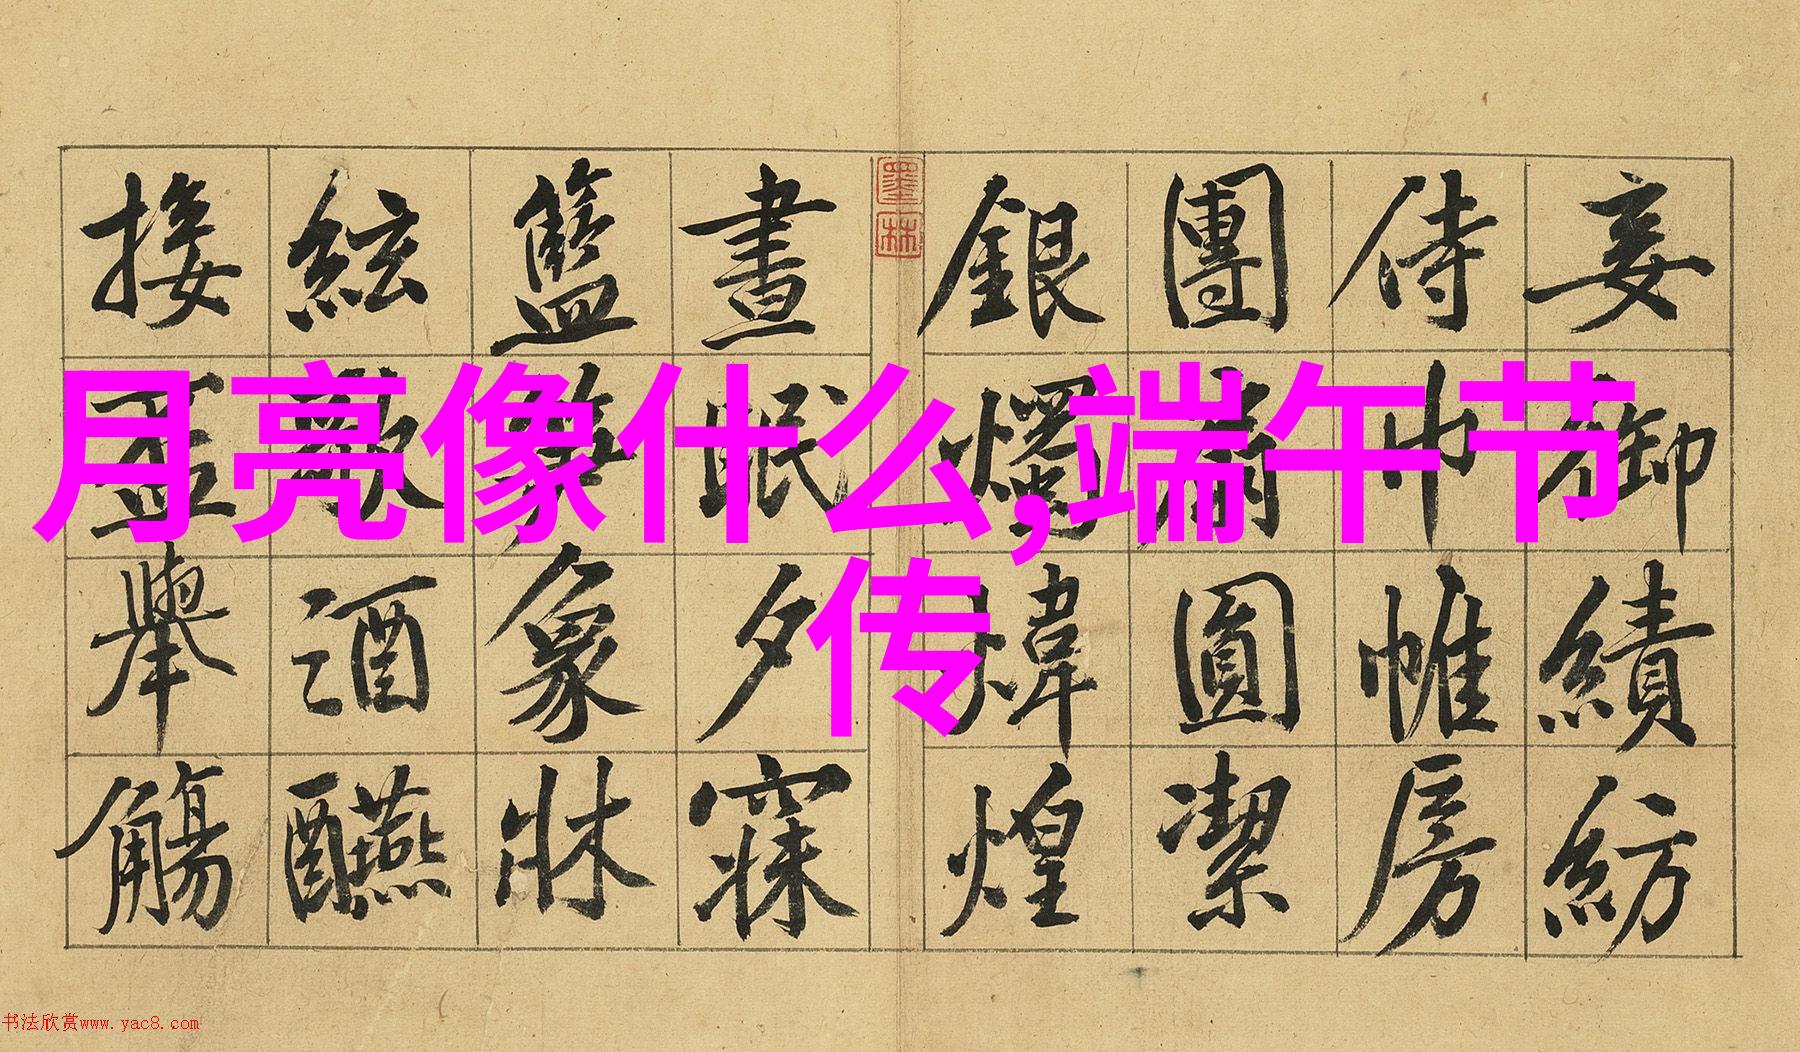 月亮像什么,端午节
传
妾御績紡
侍巾帷房
團扇圓潔
銀燭煒煌
晝眠夕寐
籃象牀
絃酒醼
接盃舉觴
墨林
书法欣赏www.yac8.com